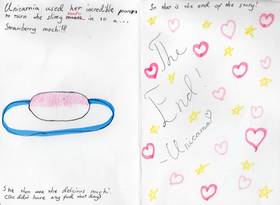 Unicarnia used her incredible powers
to turn the slimy in to a...
Strawberry mochi!!
She then ate the delicious mochi.
(She didn't have any food that day)
So that is the end of the story!
The
End!
-Unicarnia